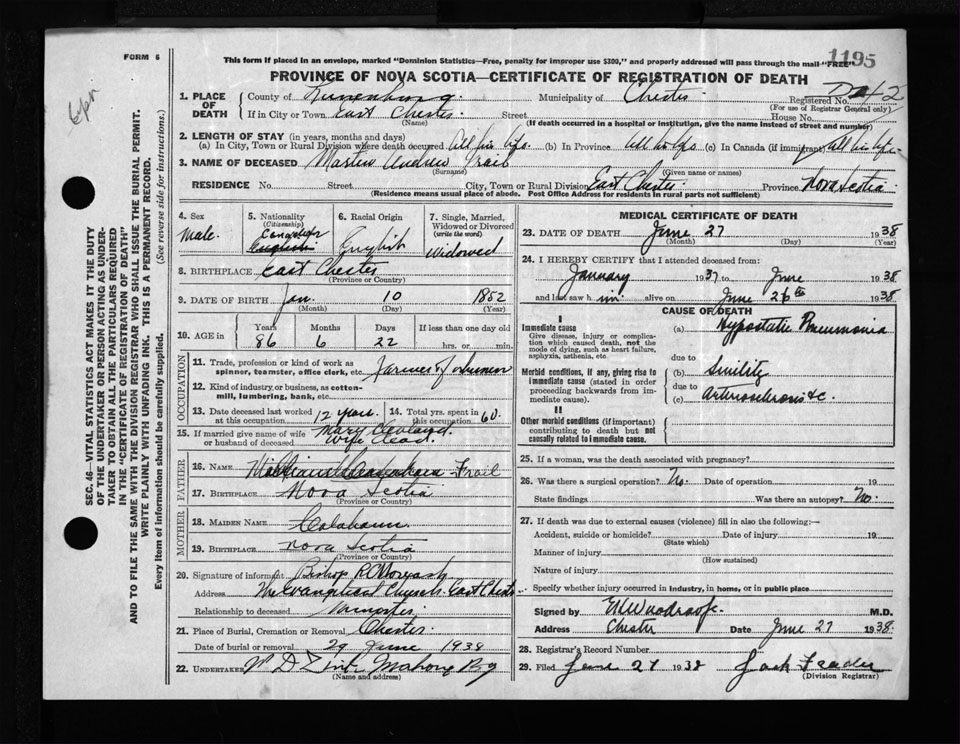 FORM 6
This form if placed in an envelope, marked "Dominion Statistics—Free, penalty for improper use $300," and properly addressed will pass through the mail "FREE"
1195
PROVINCE OF NOVA SCOTIA—CERTIFICATE OF REGISTRATION OF DEATH
1. PLACE OF DEATH
County of Lunenburg Municipality of Chester Registered No.
(For use of Registrar General only)
If in City or Town East Chester Street House No.
(Name) (If death occurred in a hospital or institution, give the name instead of street and number)
2. LENGTH OF STAY (in years, months and days)
(a) In City, Town or Rural Division where death occurred All his life. (b) In Province All his life (c) In Canada (if immigrant) All his life.
3. NAME OF DECEASED Andrew
(Surname) (Given name or names)
RESIDENCE No. Street City, Town or Rural Division East Chester Province Nova Scotia
(Residence means usual place of abode. Post Office Address for residents in rural parts not sufficient)
4. Sex
Male.
5. Nationality
(Citizenship)
English
6. Racial Origin
English
7. Single, Married, Widowed or Divorced
(write the word)
Widowed
8. BIRTHPLACE East Chester
(Province or Country)
9. DATE OF BIRTH Jan. 10 1852
(Month) (Day) (Year)
10. AGE in
Years Months Days If less than one day old
86 6 22 hrs. or min.
OCCUPATION
11. Trade, profession or kind of work as spinner, teamster, office clerk, etc. Farmer &
12. Kind of industry or business, as cotton-mill, lumbering, bank, etc.
13. Date deceased last worked at this occupation 12 years. 14. Total yrs. spent in this occupation 60.
15. If married give name of wife or husband of deceased Mary
wife dead.
FATHER
16. NAME
17. BIRTHPLACE Nova Scotia
(Province or Country)
MOTHER
18. MAIDEN NAME
19. BIRTHPLACE Nova Scotia
(Province or Country)
20. Signature of informant Bishop
Address The Evangelical Church. East Chester
Relationship to deceased Minister
21. Place of Burial, Cremation or Removal Chester
Date of burial or removal 29 June 1938
22. UNDERTAKER Mahone
(Name and address)
MEDICAL CERTIFICATE OF DEATH
23. DATE OF DEATH June 27 1938
(Month) (Day) (Year)
24. I HEREBY CERTIFY that I attended deceased from:
January 1937 to June 1938
and last saw him alive on June 26th 1938.
CAUSE OF DEATH
I
Immediate cause (a) Hypostatic Pneumonia
Give disease, injury or complication which caused death, not the mode of dying, such as heart failure, asphyxia, asthenia, etc.
due to
Morbid conditions, if any, giving rise to immediate cause (stated in order proceeding backwards from immediate cause).
(b) Senility
due to
(c) Arteriosclerosis &c.
II
Other morbid conditions (if important) contributing to death but not causally related to immediate cause.
25. If a woman, was the death associated with pregnancy?
26. Was there a surgical operation? No. Date of operation 19
State findings Was there an autopsy? No.
27. If death was due to external causes (violence) fill in also the following:—
Accident, suicide or homicide? Date of injury 19
(State which)
Manner of injury
(How sustained)
Nature of injury
Specify whether injury occurred in industry, in home, or in public place
Signed by M.D.
Address Chester Date June 27 1938.
28. Registrar's Record Number
29. Filed June 27 1938
(Division Registrar)
SEC. 46—VITAL STATISTICS ACT MAKES IT THE DUTY OF THE UNDERTAKER OR PERSON ACTING AS UNDERTAKER TO OBTAIN ALL THE PARTICULARS REQUIRED IN THE "CERTIFICATE OF REGISTRATION OF DEATH" AND TO FILE THE SAME WITH THE DIVISION REGISTRAR WHO SHALL ISSUE THE BURIAL PERMIT.
WRITE PLAINLY WITH UNFADING INK. THIS IS A PERMANENT RECORD.
Every item of information should be carefully supplied. (See reverse side for instructions.)